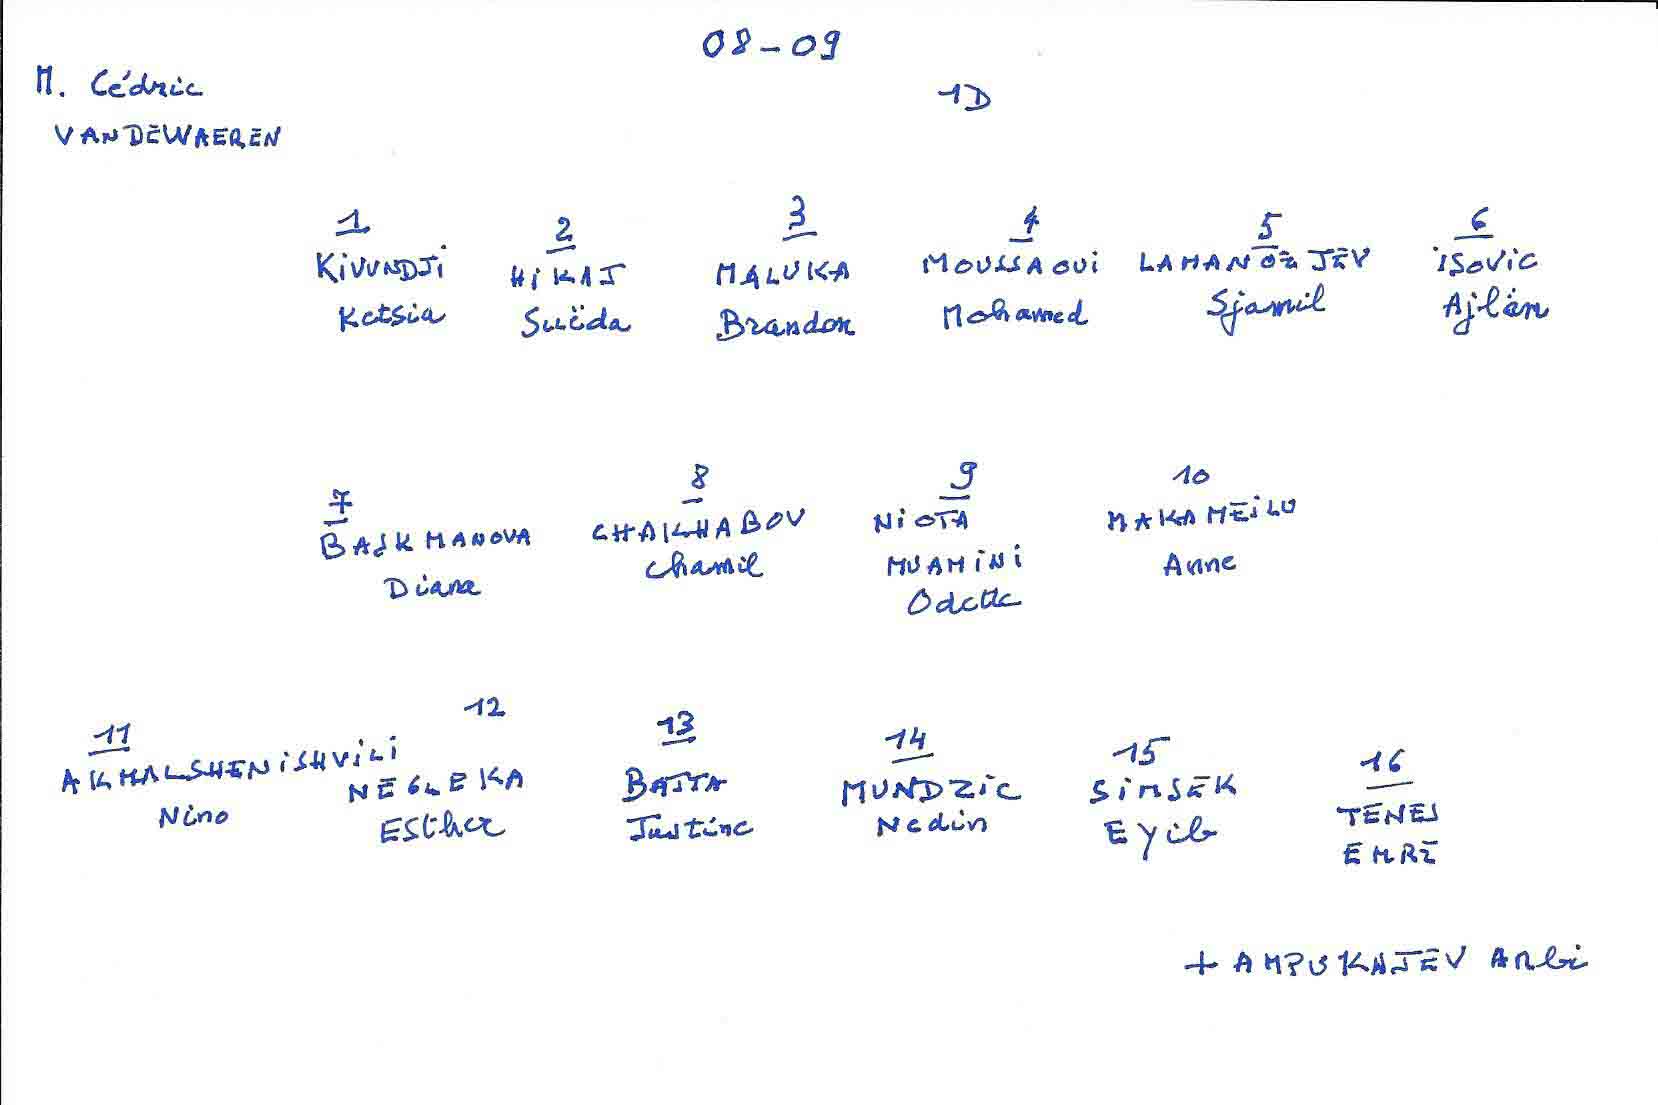 08-09
M. Cédric
1D
VANDEWAEREN
1 2 3 4 5 6
KIVUNDJI HIKAJ MALUKA MOUSSAOUI LAMANOZJEV ISOVIC
Ketsia Suëda Brandon Mohamed Sjamil Ajlan
7 8 9 10
BAJKMANOVA CHAKHABOV NIOTA MAKAMEILU
Diana Chamil MUAMINI Anne
Odette
11 12 13 14 15 16
AKHALSHENISHVILI NEGLEKA BAJTA MUNDZIC SIMSEK TENES
Nino Esther Justine Nedin Eyib EMRE
+ Arbi